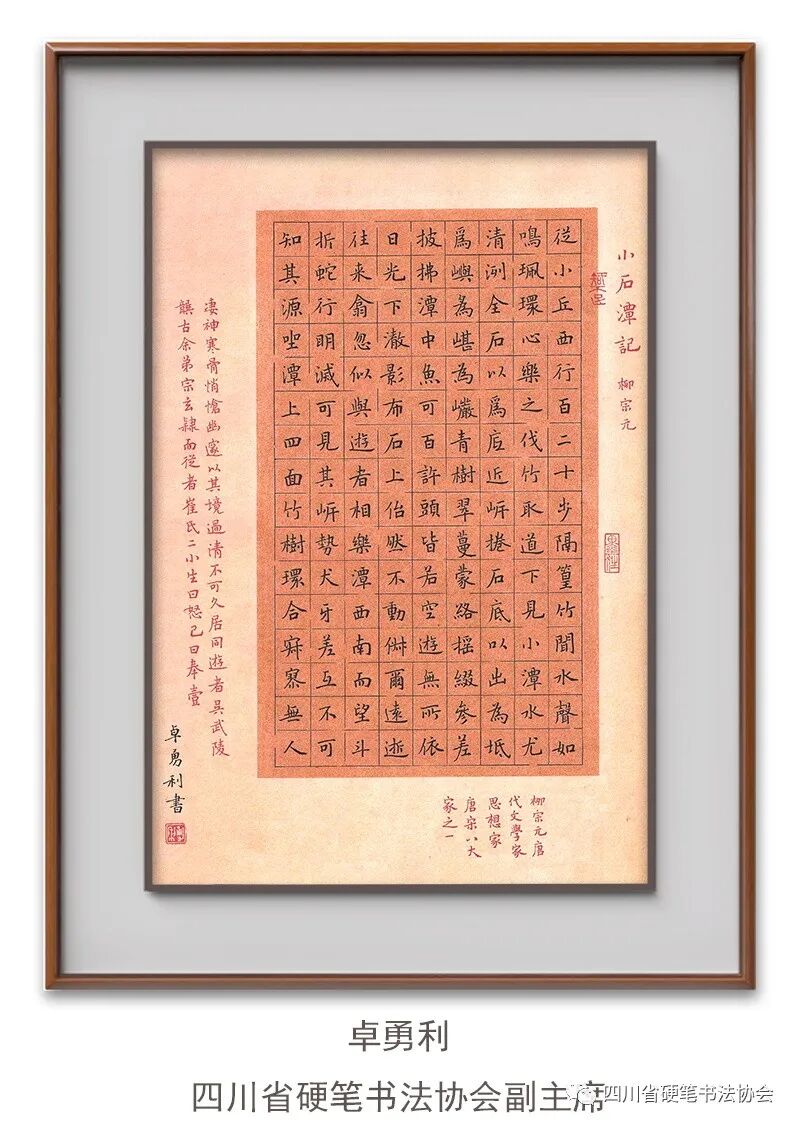 小石潭記 柳宗元
從小丘西行百二十步隔篁竹聞水聲如
鳴珮環心樂之伐竹取道下見小潭水尤
清洌全石以爲底近岍捲石底以出為坻
爲嶼為嵁為巖青樹翠蔓蒙絡摇綴參差
披拂潭中魚可百許頭皆若空遊無所依
日光下澈影布石上佁然不動俶爾遠逝
往来翕忽似與遊者相樂潭西南而望斗
折蛇行明滅可見其岍勢犬牙差互不可
知其源坐潭上四面竹樹環合寂寥無人
凄神寒骨悄愴幽邃以其境過清不可久居同遊者吴武陵
龔古余弟宗玄隸而從者崔氏二小生曰恕己曰奉壹
卓勇利書
柳宗元唐
代文學家
思想家
唐宋八大
家之一
卓勇利
四川省硬笔书法协会副主席
四川省硬笔书法协会